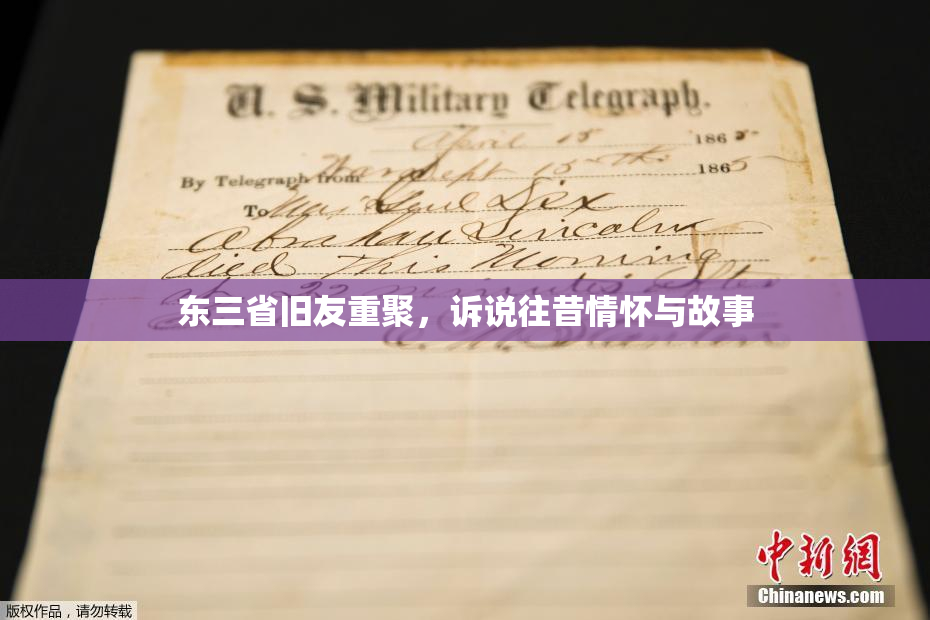 U. S. Military Telegraph.
April 15 1865
By Telegraph from War Dept 15th 1865
To Maj Genl Dix
Abraham Lincoln
died This Morning
at 22 minutes after
东三省旧友重聚，诉说往昔情怀与故事
E. M. Stanton
中新網
Chinanews.com
版权作品，请勿转载